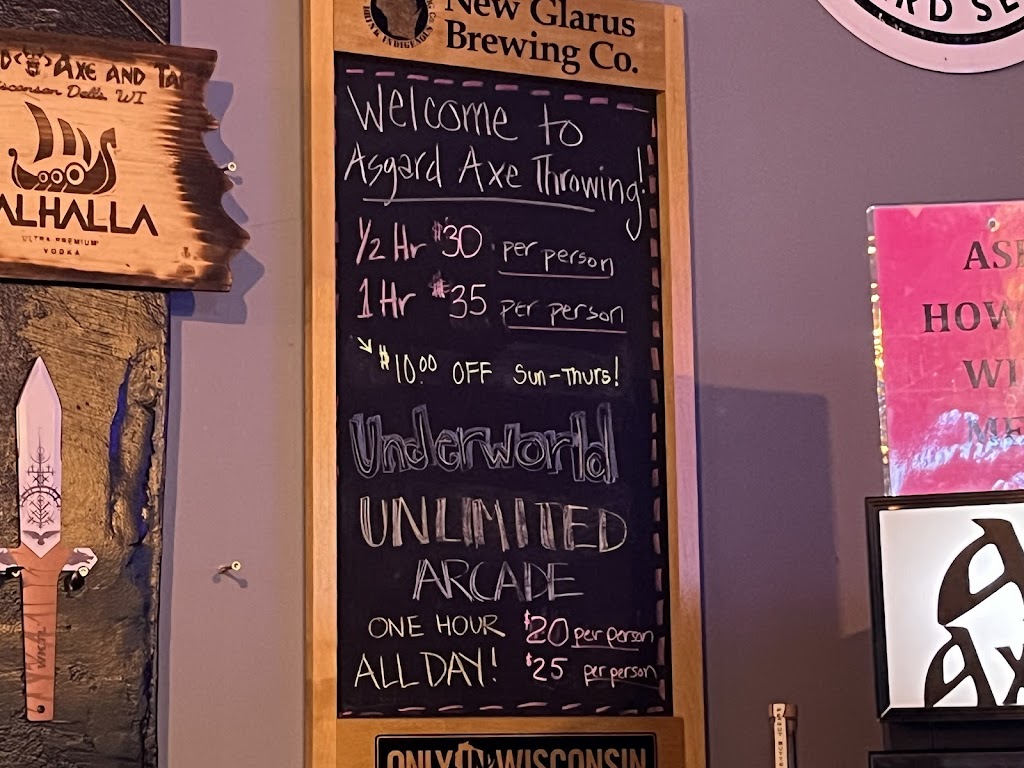 AXE AND
Wisconsin Dells, WI
VALHALLA
ULTRA PREMIUM
VODKA
New Glarus
Brewing Co.
DRINK INDIGENOUS
Welcome to
Asgard Axe Throwing!
1/2 Hr $30 per person
1 Hr $35 per person
$10.00 OFF Sun-Thurs!
Underworld
UNLIMITED
ARCADE
ONE HOUR $20 per person
ALL DAY! $25 per person
ONLY IN WISCONSIN
HOW
WI
ME